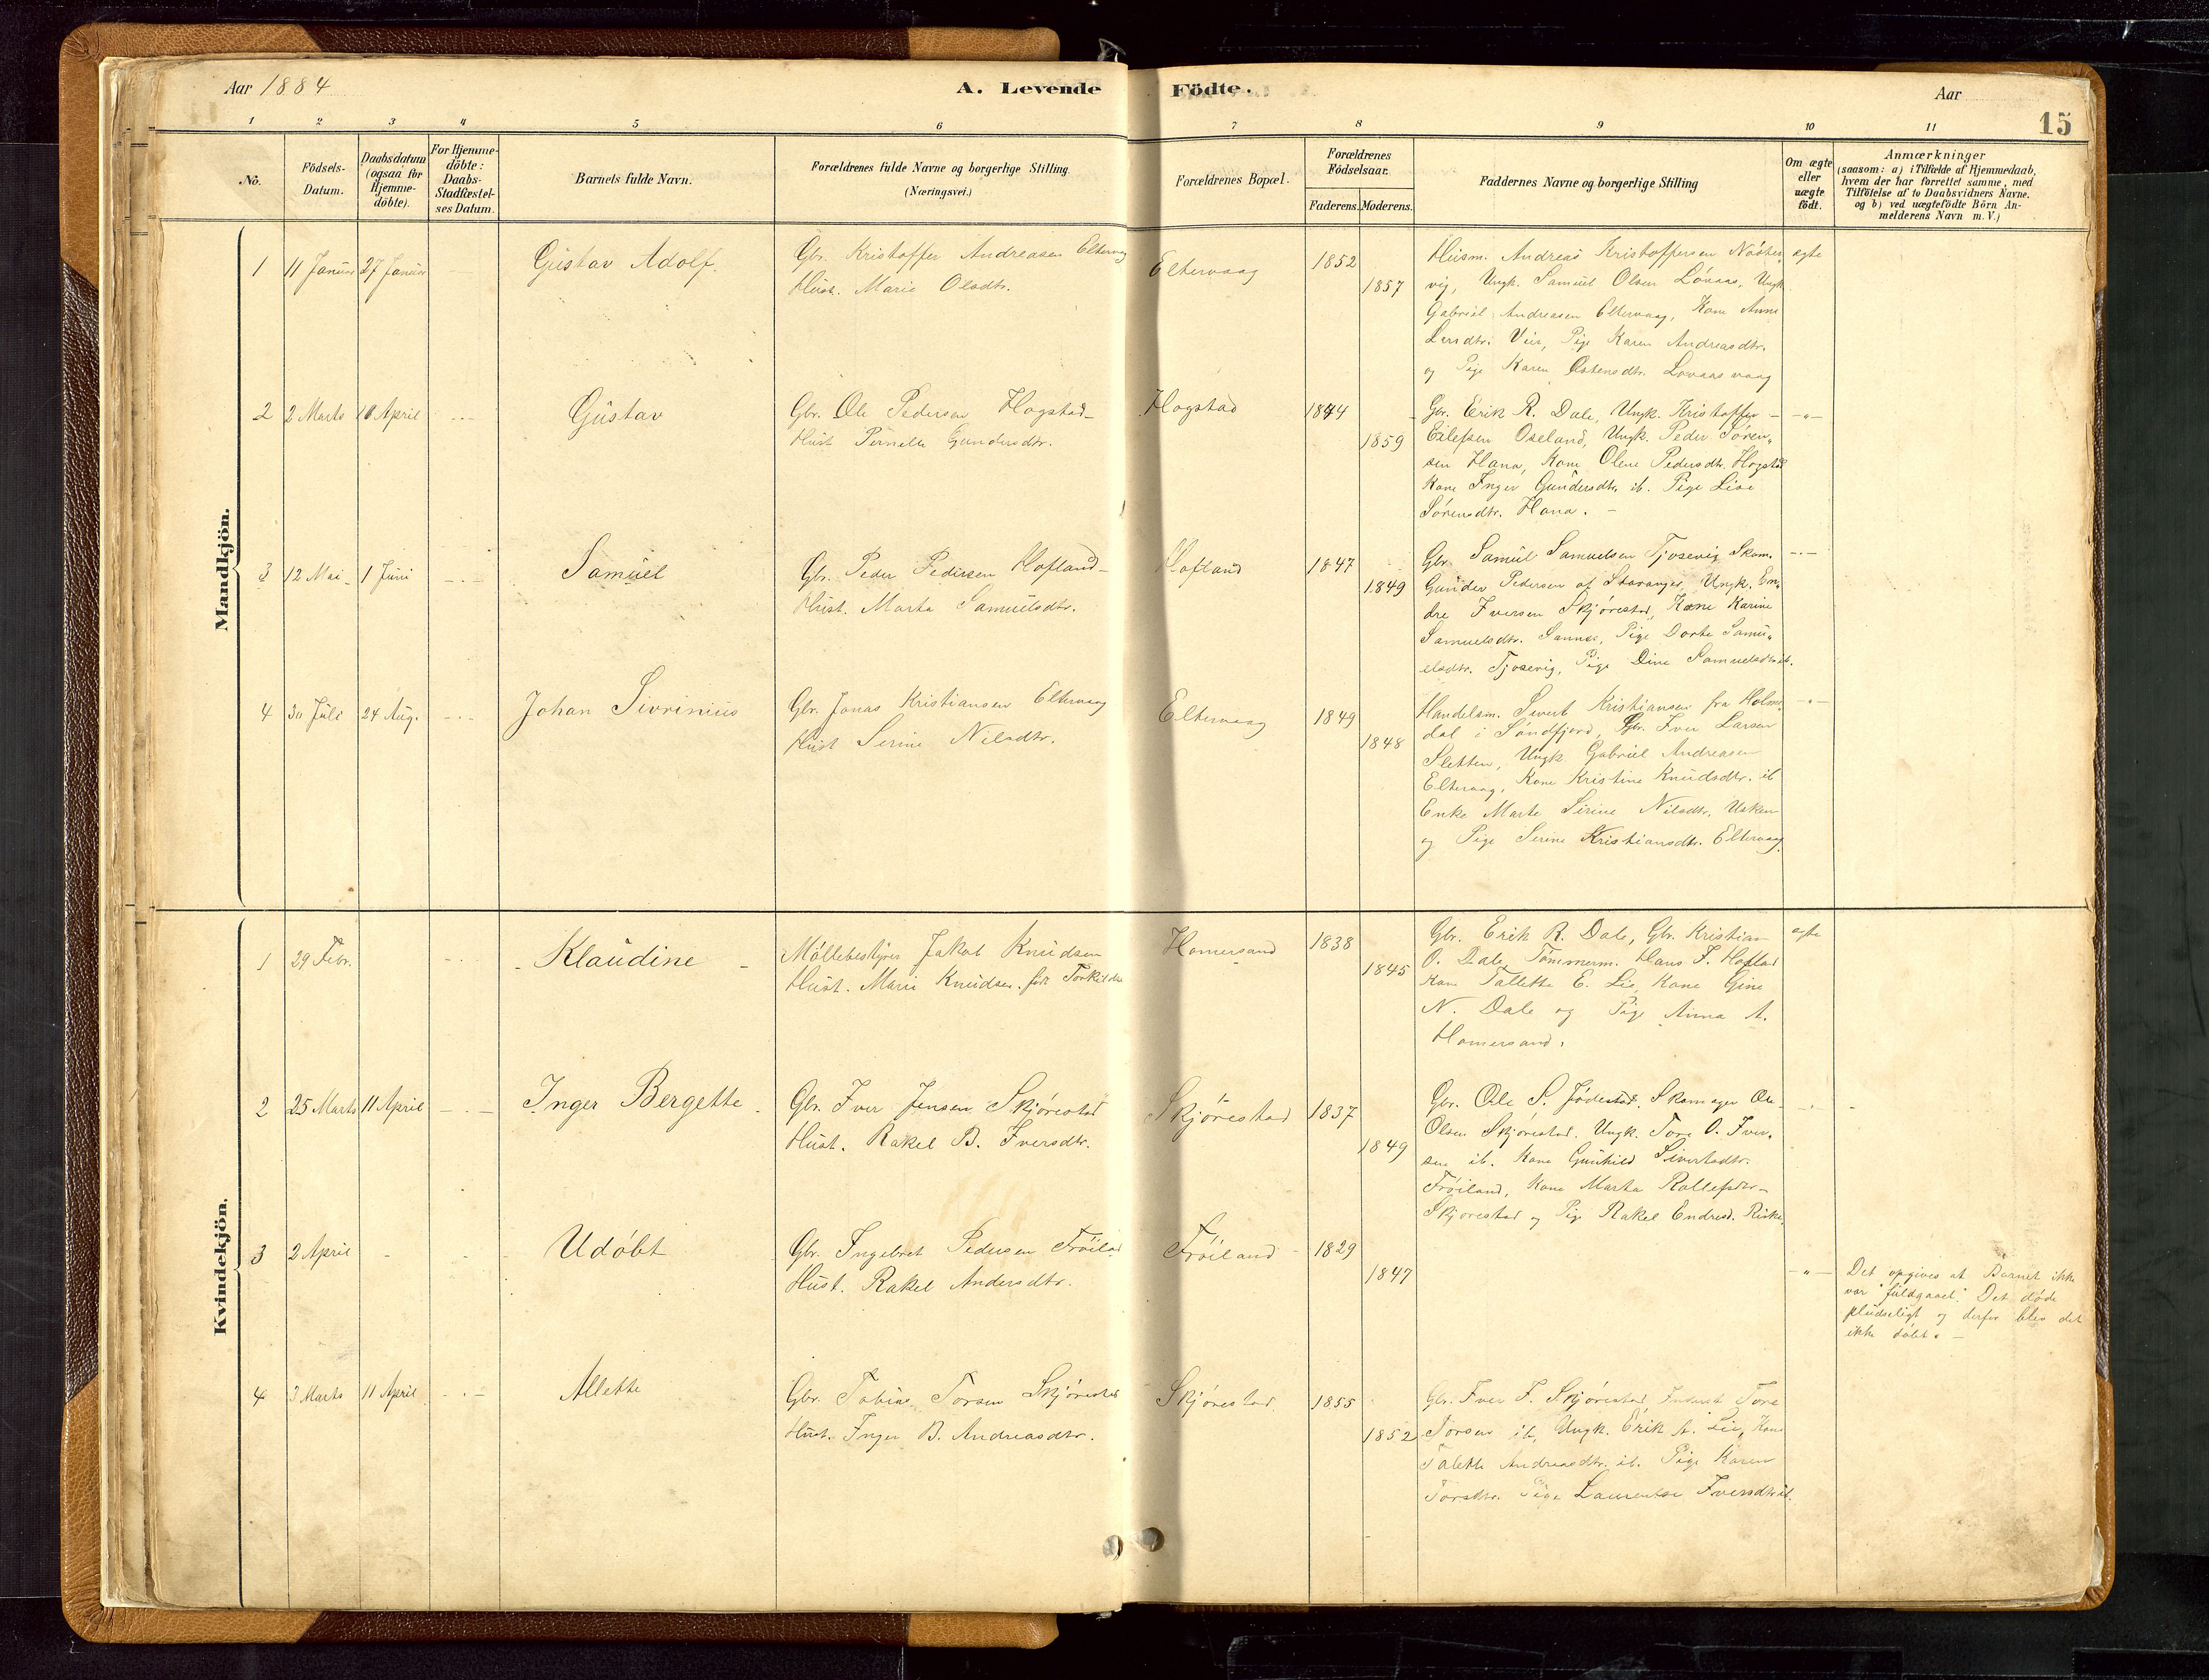 Aar 1884
A. Levende
Födte.
Aar
15
1 2 3 4 5 6 7 8 9 10 11
No.
Födsels-
Datum.
Daabsdatum
(ogsaa for
Hjemme-
döbte).
For Hjemme-
döbte:
Daabs-
Stadfæstel-
ses Datum.
Barnets fulde Navn.
Forældrenes fulde Navne og borgerlige Stilling
(Næringsvei.)
Forældrenes Bopæl.
Forældrenes
Födselsaar.
Faderens.
Moderens.
Faddernes Navne og borgerlige Stilling
Om ægte
eller
uægte
födt.
Anmærkninger
(saasom: a) i Tilfælde af Hjemmedaab,
hvem der har forrettet samme, med
Tilföielse af to Daabsvidners Navne,
og b) ved uægtefödte Börn An-
melderens Navn m. V.)
Mandkjön.
1
11 Januar
27 Januar
Gustav Adolf.
Gbr. Kristoffer Andreasen Eltervag
Hust. Marie Olsdtr.
Eltervaag
1852
1857
Husm. Andreas Kristoffersen
vig, Ungk. Samuel Olsen Lóvaas, Ungk.
Gabriel Andreasen Eltervaag, Kone Anne
Larsdtr. Vier, Pige Karen Andreasdtr.
og Pige Karen Lovaasvaag
ægte
2
2 Marts
10 April
Gustav
Gbr. Ole Pedersen Hogstad
Hust. Pernelle Gundersdtr.
Hogstad
1844
1859
Gbr. Erik R. Dale, Ungk. Kristoffer
Eilefsen Oseland, Ungk. Peder Sören-
sen Hana, Kone Olene Pedersdtr. Hogstad
Kone Inger Gundersdtr. ib. Pige Lise
Sörensdtr. Hana.
3
12 Mai
1 Juni
Samuel
Gbr. Peder Pedersen Hofland
Hust. Marta Samuelsdtr.
Hofland
1847
1849
Gbr. Samuel Samuelsen Tjosevig, Skom.
Gunder Pedersen af Stavanger, Ungk. En-
dre Iversen Skjórestad, Kone Karine
Samuelsdtr. Sannes, Pige Dorte Samu-
elsdtr. Tjosevig, Pige Dine Samuelsdtr. ib.
4
30 Juli
24 Aug.
Johan Sivrinius
Gbr. Jonas Kristiansen Eltervaag
Hust Serine Nilsdtr.
Eltervaag
1849
1848
Handelsm. Sivert Kristiansen fra Holme-
dal i Sóndfjord, Gbr. Iver Larsen
Sletten, Ungk. Gabriel Andreasen
Eltervaag, Kone Kristine Knudsdtr. ib
Enke Marte Serine Nilsdtr. Usken
og Pige Serine Kristiansdtr. Eltervaag.
Kvindekjön.
1
29 Febr.
Klaudine
Móllebestyrer Jakob Knudsen
Hust. Marie Knudsen. fódt
Homersand
1838
1845
Gbr. Erik R. Dale, Gbr. Kristian
O. Dale, Tómmerm. Hans J. Hofland
Kone Tallette E. Lie, Kone Gine
N. Dale og Pige Anna A.
Homersand.
ægte
2
25 Marts
11 April
Inger Bergette
Gbr. Iver Jensen Skjórestad
Hust. Rakel B. Iversdtr.
Skjórestad
1837
1849
Gbr. Ole S. Skomager Ole
Olsen Skjórestad. Ungk. Tore O. Iver-
sen ib. Kone Gunhild Sivertsdtr.
Fróiland, Kone Marta Rollefsdtr.
Skjorestad og Pige Rakel Endresd. Riske.
3
2 April
Udóbt
Gbr. Ingebret Pedersen Fróiland
Hust. Rakel Andersdtr.
Fróiland
1829
1847
Det opgives at Barnet ikke
var "fuldgaaet." Det dóde
pludseligt og derfor blev det
ikke dóbt.
4
3 Marts
11 April
Allette
Gbr. Tobias Torsen Skjórestad
Hust. Inger B. Andreasdtr.
Skjórestad
1855
1852
Gbr. Iver J. Skjórestad, Inderst Tore
Torsen ib, Ungk. Erik A. Lie, Kone
Talette Andreasdtr. ib. Pige Karen
Torsdtr. Pige Laurentse Iversdtr ib.